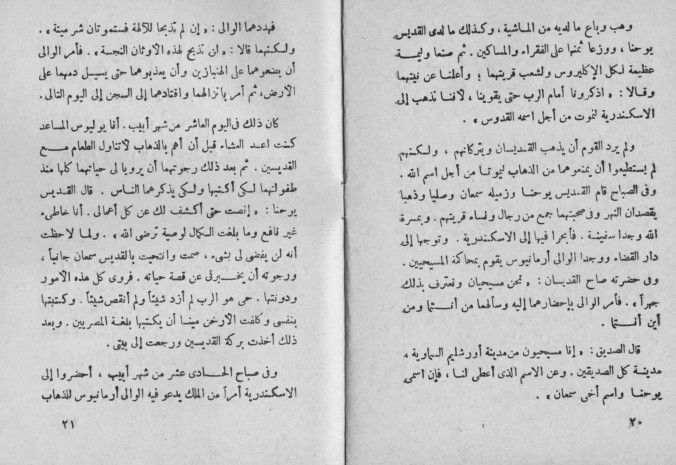 وهب وباع ما لديه من الماشية ، وكذلك ما لدى القديس
يوحنا ، ووزعا ثمنها على الفقراء والمساكين . ثم صنعا وليمة
عظيمة لكل الإكليروس ولشعب قريتهما ؛ وأعلنا عن نيتهما
وقالا : « اذكرونا أمام الرب حتى يقوينا ، لأننا نذهب إلى
الاسكندرية لنموت من أجل اسمه القدوس » .
ولم يرد القوم أن يذهب القديسان ويتركانهم ، ولكنهم
لم يستطيعوا أن يمنعوهما من الذهاب ليموتا من أجل اسم الله .
وفى الصباح قام القديس يوحنا وزميله سمعان وصليا وذهبا
يقصدان النهر وفى صحبتهما جمع من رجال ونساء قريتهم . وبمسرة
الله وجدا سفينة . فأبحرا فيها إلى الاسكندرية . وتوجها إلى
دار القضاء ووجدا الوالى أرمانيوس يقوم بمحاكمة المسيحيين .
وفى حضرته صاح القديسان : « نحن مسيحيان ونعترف بذلك
جهراً » . فأمر الوالى بإحضارهما إليه وسألهما من أنتما ومن
أين أنتما .
قال الصديق : « إنا مسيحيون من مدينة أورشليم السماوية »
مدينة كل الصديقين . وعن الاسم الذى أعطى لنا ، فإن اسمى
يوحنا واسم أخى سمعان » .
٢٠
فهددهما الوالى : « إن لم تذبحا للآلهة فستموتان شر ميتة » .
ولكنهما قالا : « لن نذبح لهذه الأوثان النجسة » . فأمر الوالى
أن يضعوهما على الهنبازين وأن يعذبوهما حتى يسيل دمهما على
الأرض، ثم أمر بإنزالهما واقتادهما إلى السجن إلى اليوم التالى.
كان ذلك فى اليوم العاشر من شهر أبيب . أنا يوليوس المساعد
كنت اعد العشاء قبل أن أهم بالذهاب لأتناول الطعام مع
القديسين . ثم بعد ذلك رجوتهما أن يرويا لى حياتهما كلها منذ
طفولتهما لكى أكتبها ولكى يذكرهما الناس . قال القديس
يوحنا : « إنصت حتى أكشف لك عن كل أعمالى . أنا خاطىء
غير نافع وما بلغت الكمال لوصية ترضى الله » . ولما لاحظت
أنه لن يفضى لى بشىء ، صمت وانتحيت بالقديس سمعان جانباً ،
ورجوته أن يخبرنى عن قصة حياته . فروى كل هذه الأمور
ودونتها . حى هو الرب لم أزد شيئاً ولم أنقص شيئاً . وكتبتها
بنفسى وكلفت الأرخن مينا أن يكتبها بلغة المصريين . وبعد
ذلك أخذت بركة القديسين ورجعت إلى بيتى .
وفى صباح الحادى عشر من شهر أبيب ، أحضروا إلى
الاسكندرية أمراً من الملك يدعو فيه الوالى أرمانيوس للذهاب
٢١